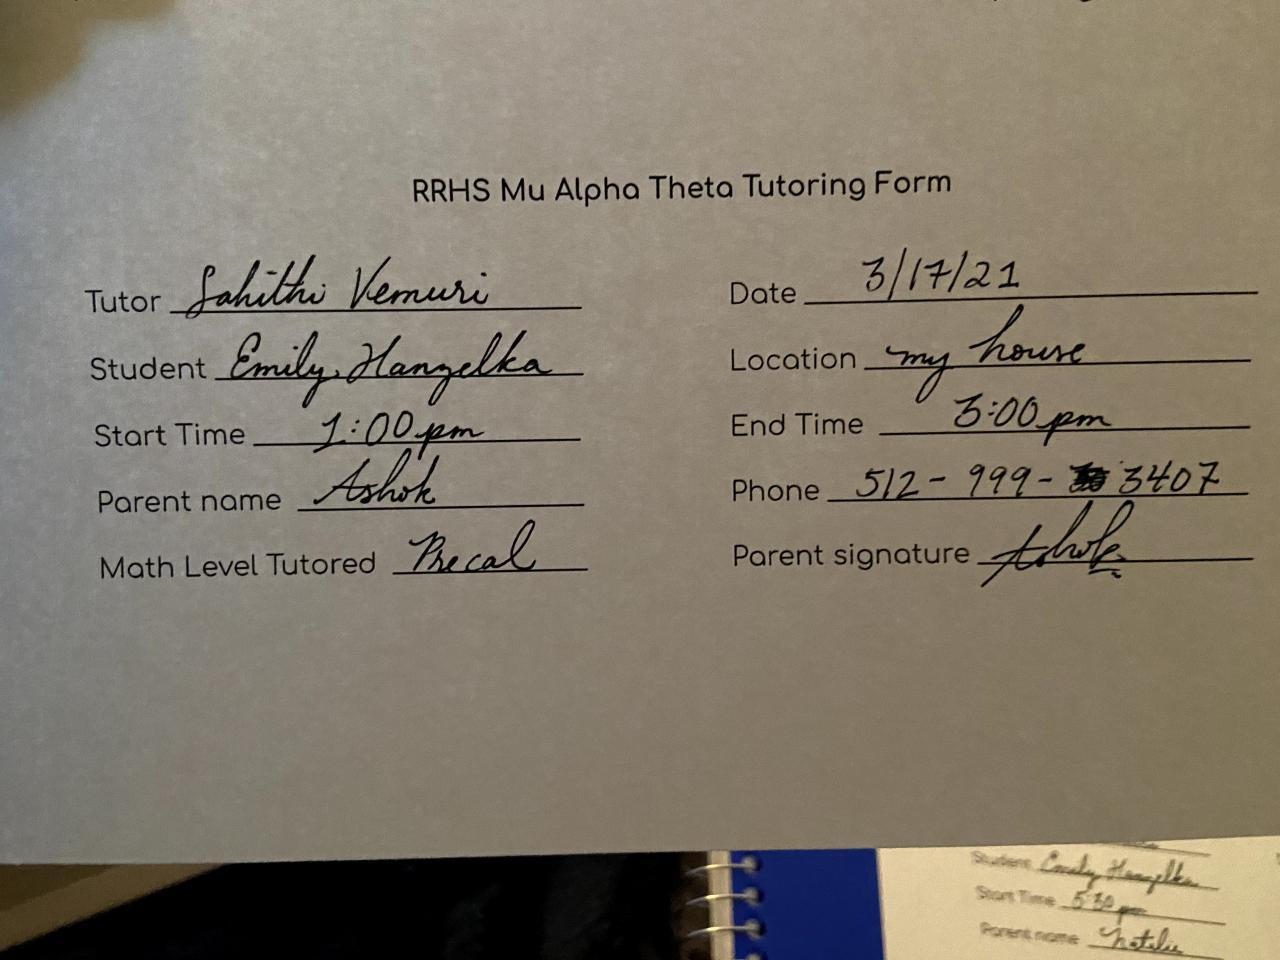 RRHS Mu Alpha Theta Tutoring Form
Tutor Sahithi Vemuri Date 3/17/21
Student Emily Hanzelka Location my house
Start Time 1:00 pm End Time 3:00 pm
Parent name Ashok Phone 512-999-3407
Math Level Tutored Precal Parent signature Ashok
Student Emily Hanzelka
Start Time 5:30 pm
Parent name Natalie